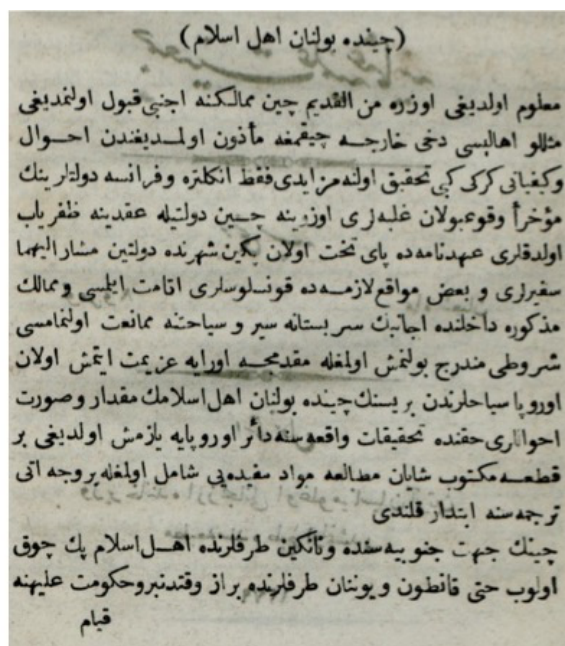 (چینده بولنان اهل اسلام)
معلوم اولدیغی اوزره من القدیم چین ممالکنه اجنبی قبول اولنمدیغی
مثللو اهالیسی دخی خارجه چیقمغه مأذون اولمدیغندن احوال
وکیفیاتی کرکی کبی تحقیق اولنه مز ایدی فقط انکلتره و فرانسه دولتلرینك
مؤخراً وقوعبولان غلبه لری اوزرینه چین دولتیله عقدینه ظفریاب
اولدقلری عهدنامه ده پای تخت اولان پکین شهرنده دولتین مشار الیهما
سفیرلری و بعض مواقع لازمه ده قونسلوسلری اقامت ایلمسی وممالك
مذکوره داخلنده اجانبك سربستانه سیر و سیاحتنه ممانعت اولنمامسی
شروطی مندرج بولنمش اولمغله مقدمجه اورایه عزیمت ایتمش اولان
اوروپا سیاحلرندن بریسنك چینده بولنان اهل اسلامك مقدار وصورت
احواللری حقنده تحقیقات واقعه سنه دائر اوروپایه یازمش اولدیغی بر
قطعه مکتوب شایان مطالعه مواد مفیده یی شامل اولمغله بروجه اتی
ترجمه سنه ابتدار قلندی
چینك جهت جنوبیه سنده ونانکین طرفلرنده اهل اسلام پك چوق
اولوب حتی قانطون و یوننان طرفلرنده براز وقتدنبرو حکومت علیهنه
قیام